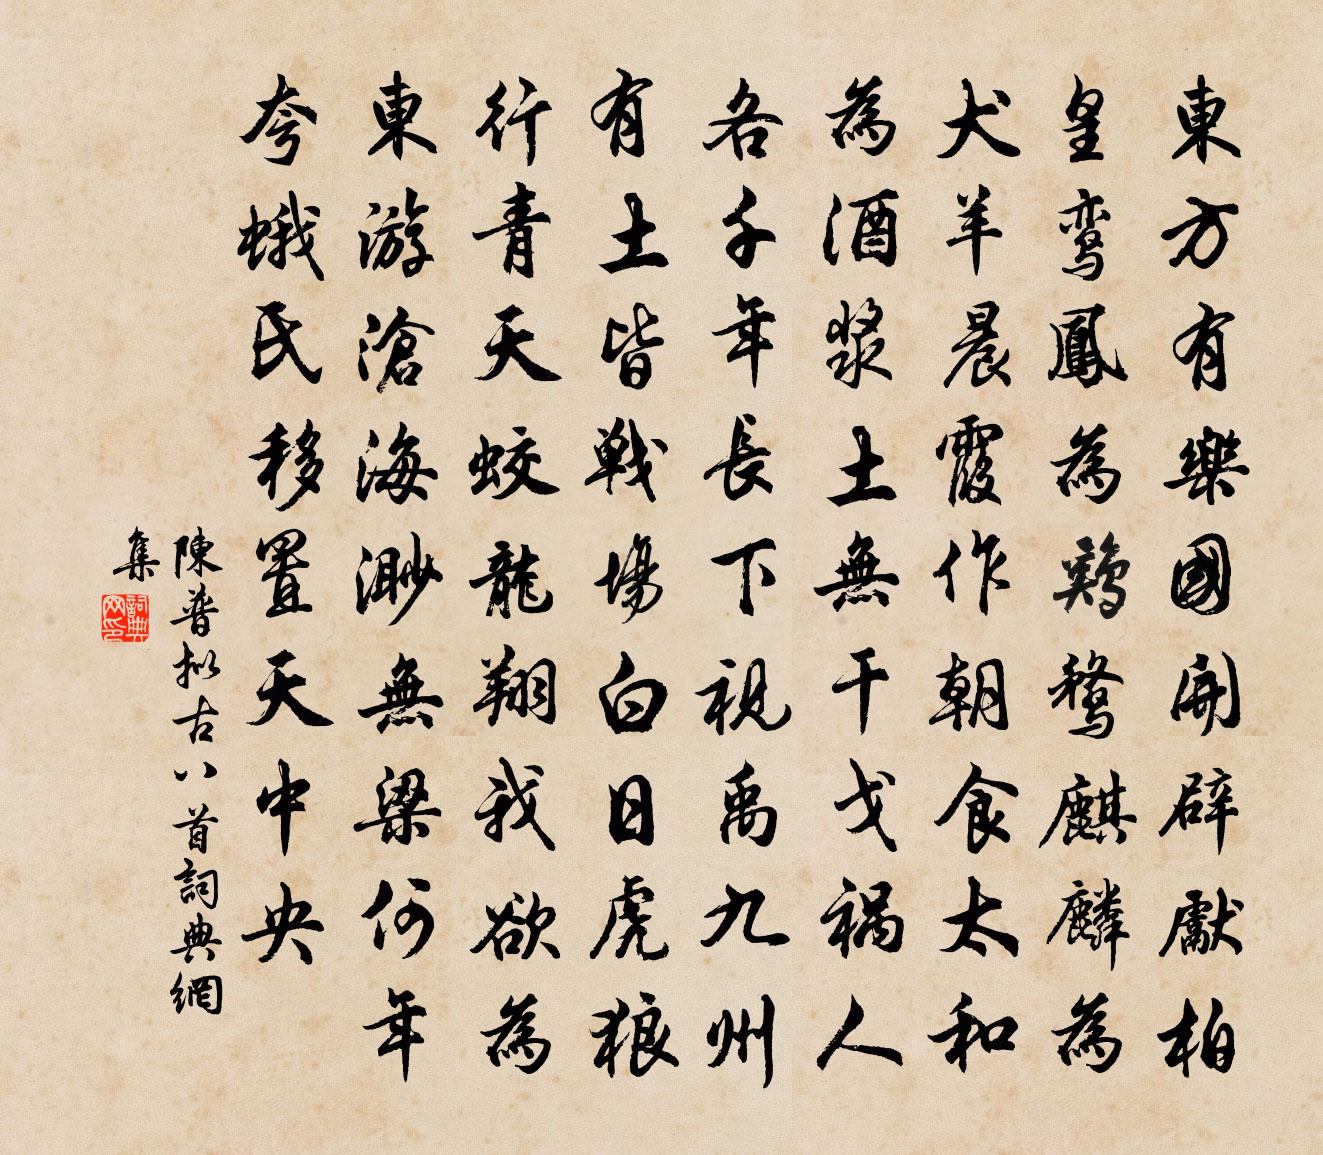 東方有樂國開辟獻柏
皇鸾鳳為鷄鶩麒麟為
犬羊晨霞作朝食太和
為酒漿土無干戈祸人
各千年長下視禹九州
有土皆戦場白日虎狼
行青天蛟龍翔我欲為
東游滄海渺無梁何年
夸蛾氏移置天中央
陳普拟古八首詞典網
集
詞典
网